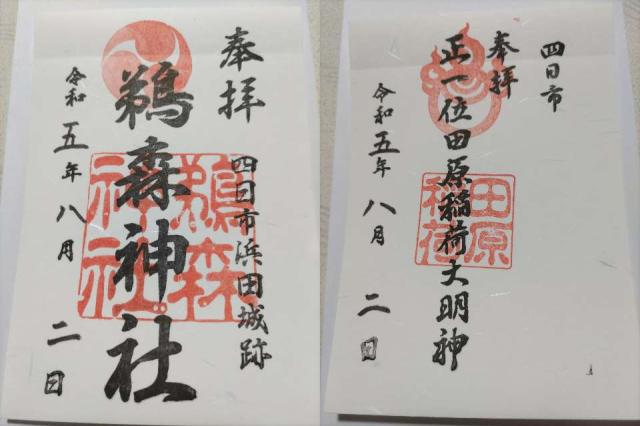 奉拝
四日市浜田城跡
鵜森神社
鵜森神社
令和五年八月二日
四日市
奉拝
正一位田原稲荷大明神
田原稲荷
令和五年八月二日